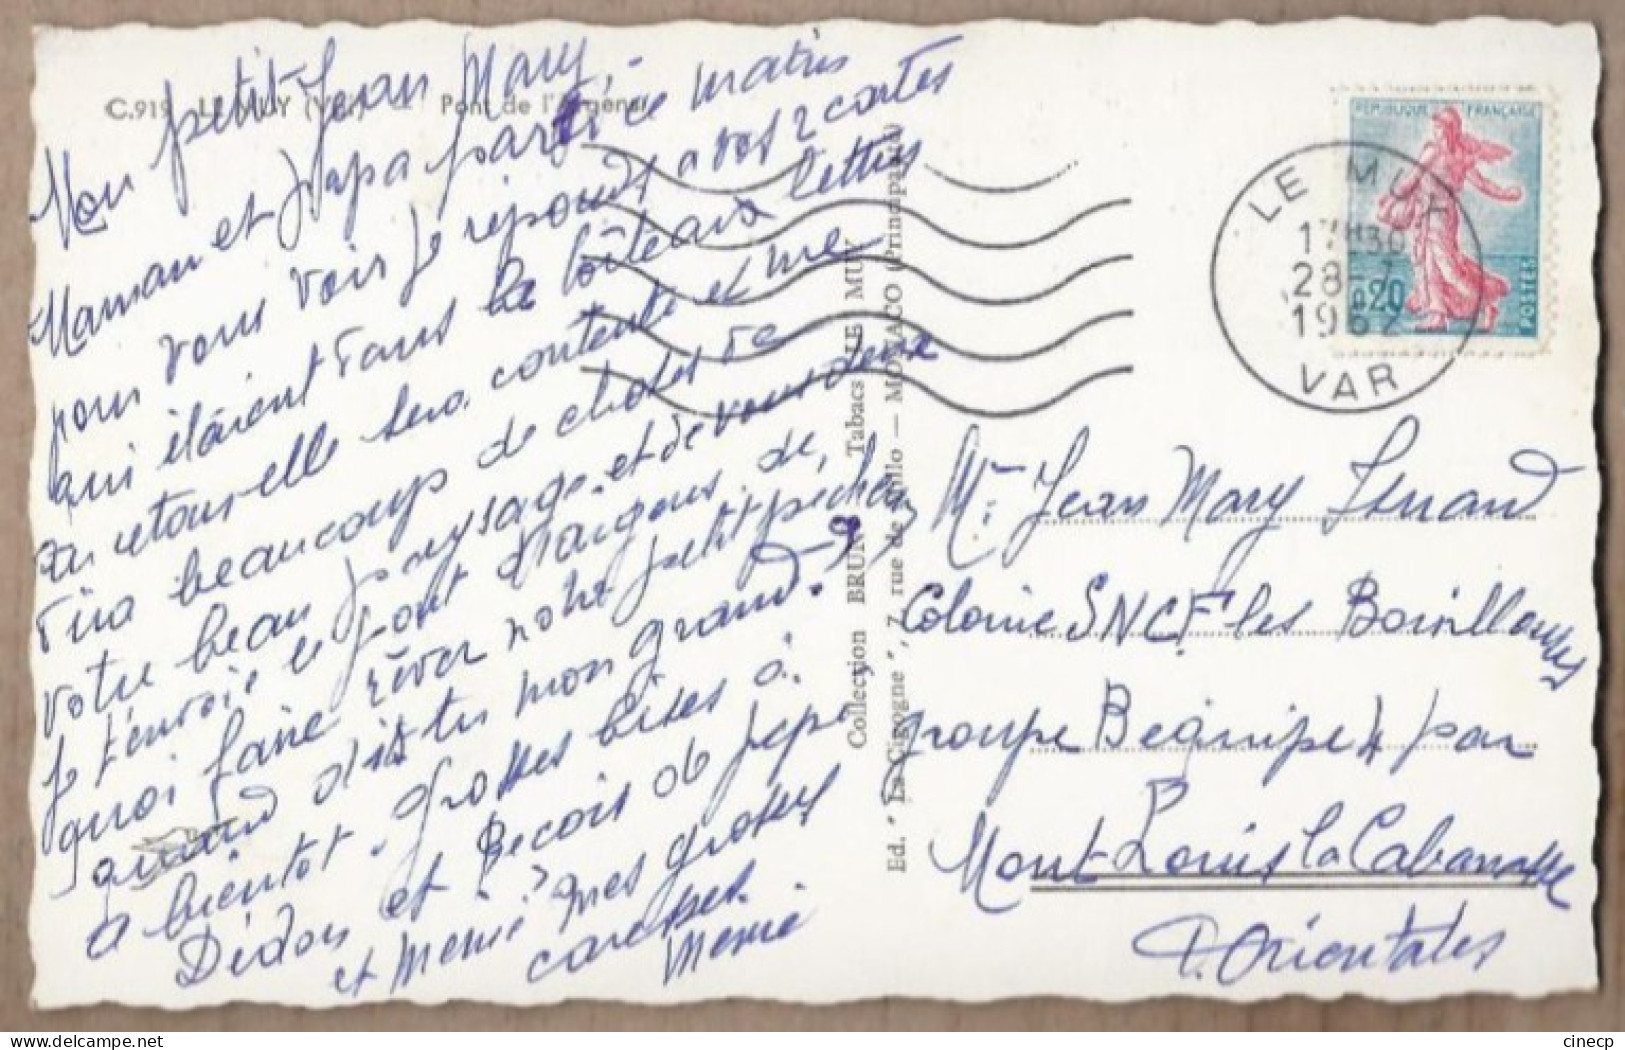 C.919 LE MUY (Var) Pont de l'Argens
Mon petit Jean Mary,
Maman et Papa parti ce matin
pour vous voir Je réponds a vos 2 cartes
qui étaient dans la boîte aux lettres
au retour elle sera contente et me
tira beaucoup de choses de
votre beau paysage. et de vous deux
Je t'envoie le pont d'Argens. de,
quoi faire rêver notre petit pecheur
quand dis tu mon grand.
a bientot. grosses bises a
Dédou et Becois de pepe
et Memé? mes grosses
caresses.
Memé
Collection BRUNO Tabacs LE MUY
Ed. " La Cigogne ", 7, rue de Millo — MONACO (Principauté)
REPUBLIQUE FRANÇAISE
0,20
POSTES
LE MUY
17H30
28-7
1962
VAR
Mr Jean Mary
Colonie SNCF les Bouillouses
groupe B equipe 4 par
Mont Louis la Cabanasse
P. Orientales
cinecp